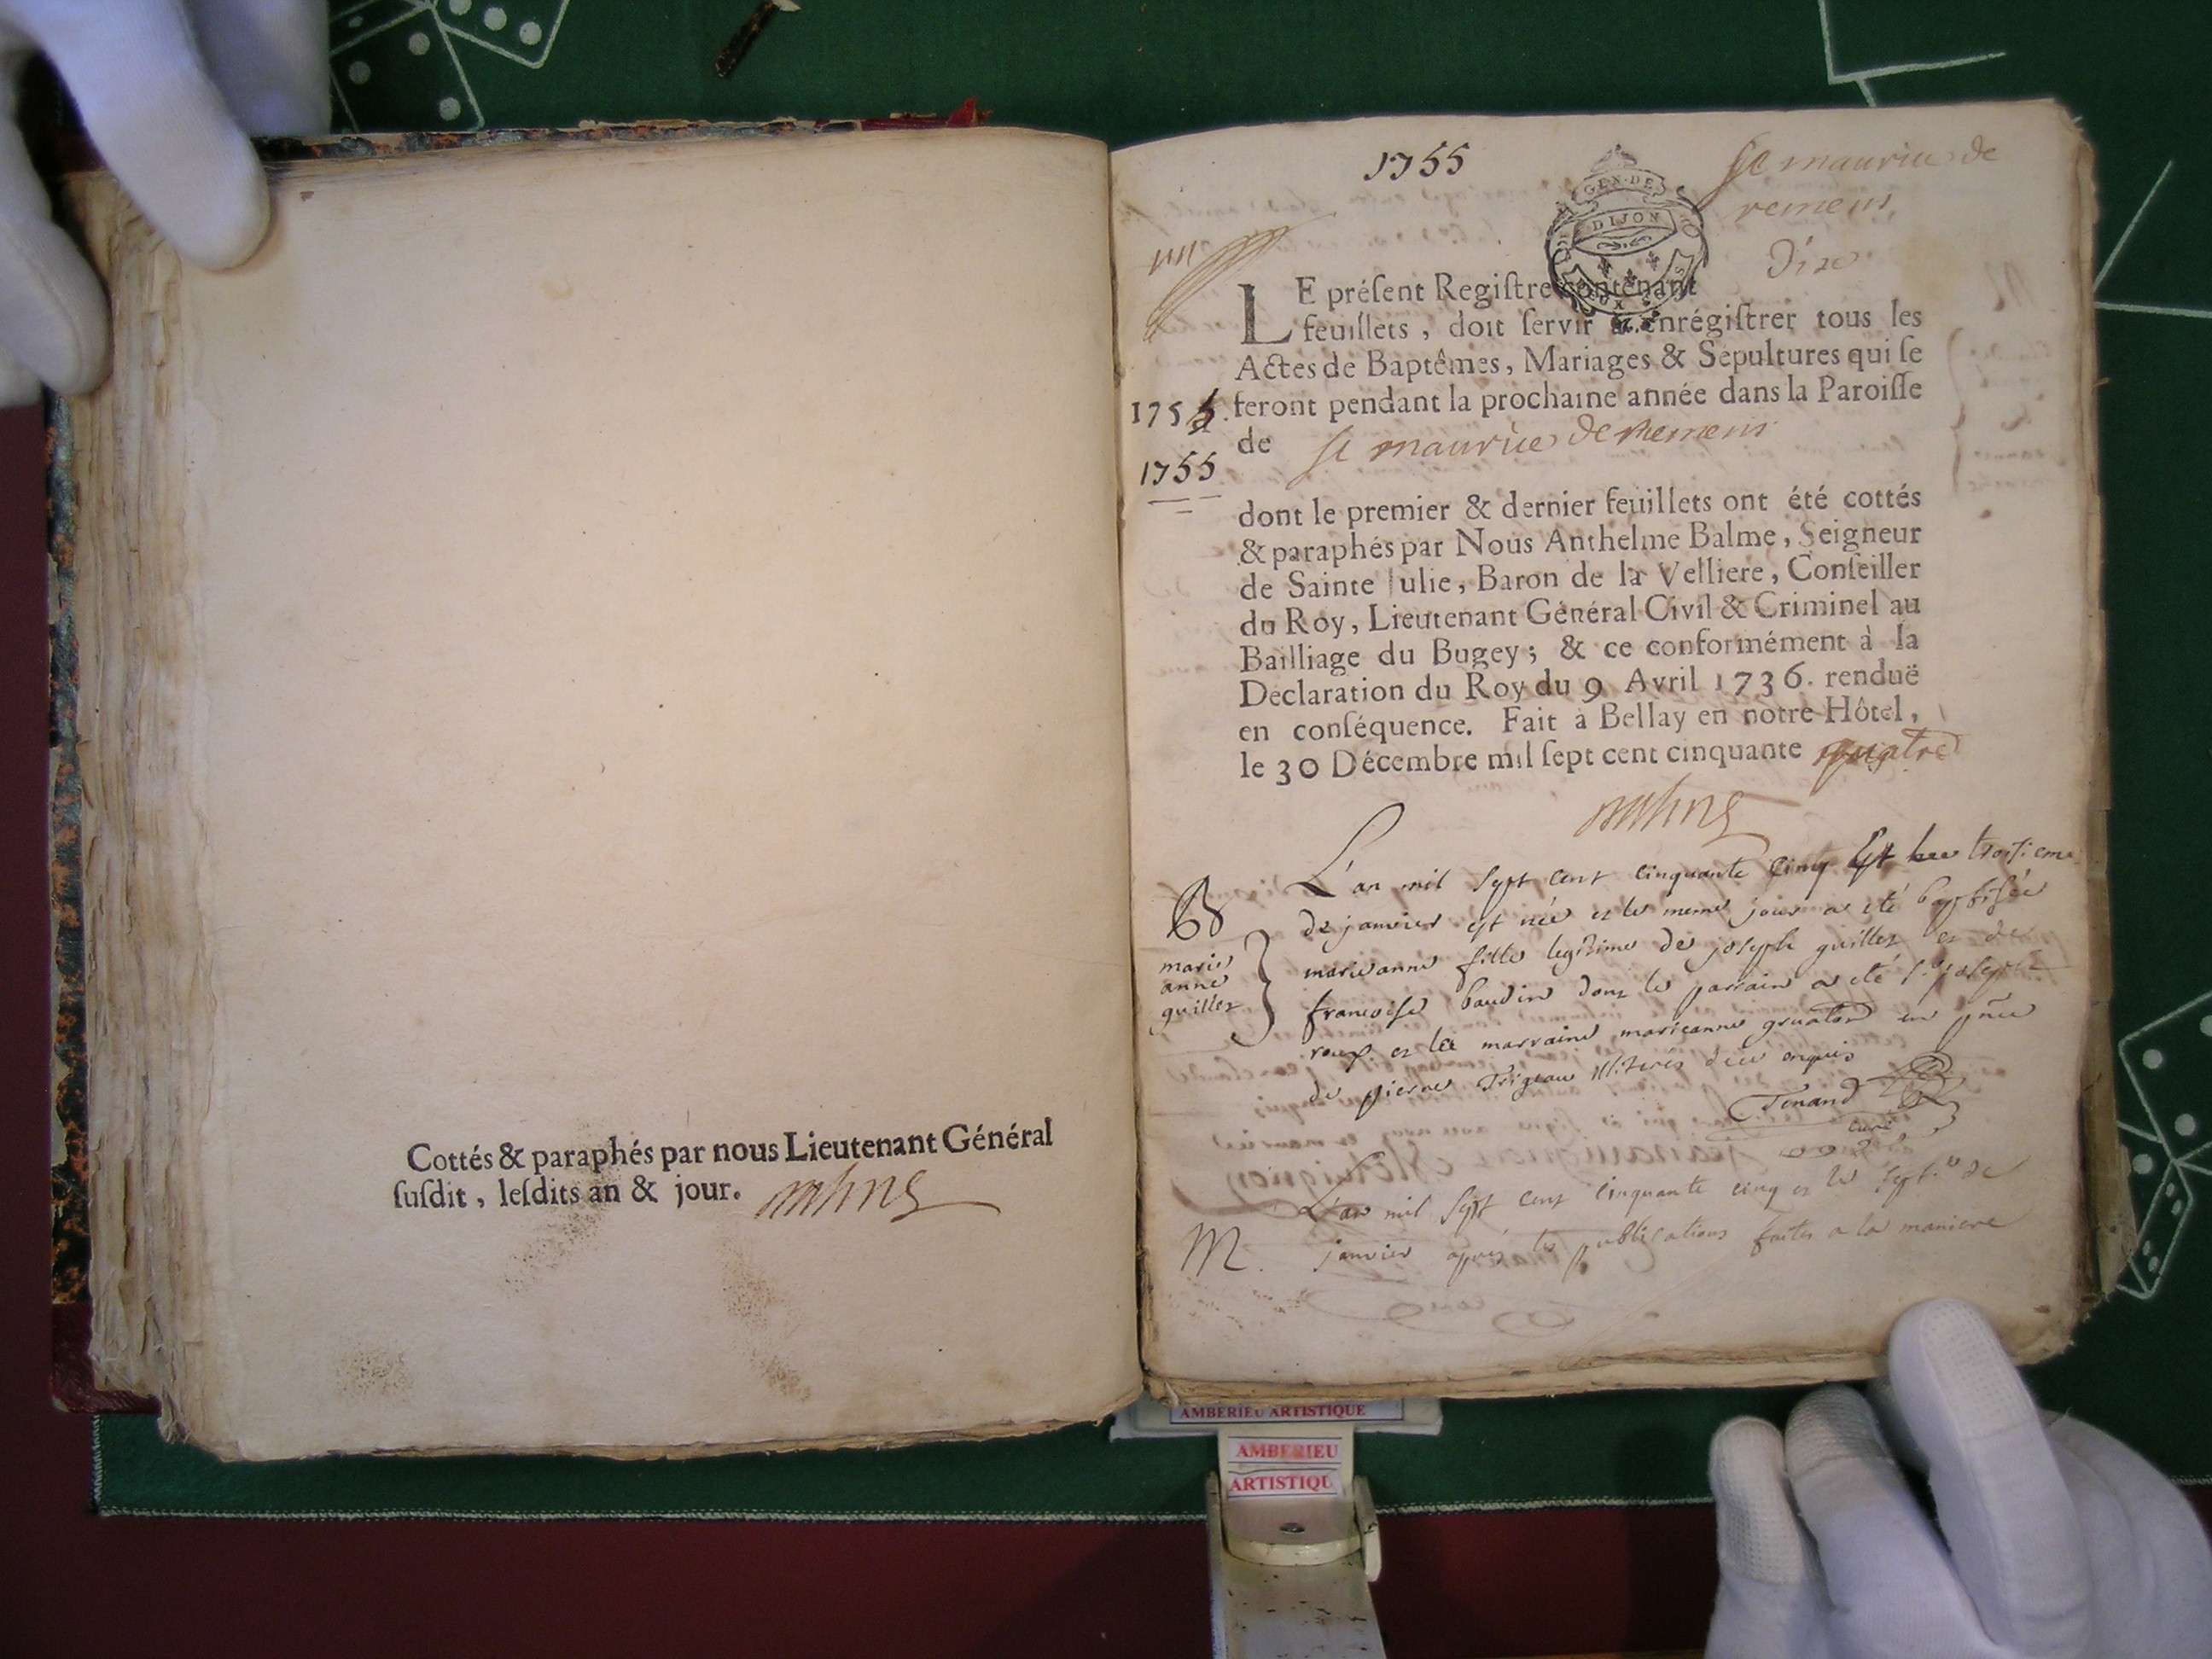 Cottés & paraphés par nous Lieutenant Général
ſuſdit, leſdits an & jour.
1755
st maurice de
remens
GEN·DE
DIJON
dix
LE préſent Regiſtre contenant
feuillets, doit ſervir à enrégiſtrer tous les
Actes de Baptêmes, Mariages & Sépultures qui ſe
1755. feront pendant la prochaine année dans la Paroiſſe
de st maurice de remens
1755
dont le premier & dernier feuillets ont été cottés
& paraphés par Nous Anthelme Balme, Seigneur
de Sainte Julie, Baron de la Velliere, Conſeiller
du Roy, Lieutenant Général Civil & Criminel au
Bailliage du Bugey; & ce conformément à la
Déclaration du Roy du 9 Avril 1736. renduë
en conſéquence. Fait à Bellay en notre Hôtel,
le 30 Décembre mil ſept cent cinquante quatre
L'an mil sept cent cinquante cinq et le troisieme
B de janvier est née et le meme jour a été baptisée
marie
anne
guillet
marieanne fille legitime de joseph guillet et de
francoise baudin dont le parrain a eté sr joseph
roux et la marraine marieanne gruator en pnce
de pierre Trigeau illiteres deue enquis
Tenand
curé
L'an mil sept cent cinquante cinq et le sept de
M. janvier apres les publications faites a la maniere
AMBERIEU ARTISTIQUE
AMBERIEU
ARTISTIQU